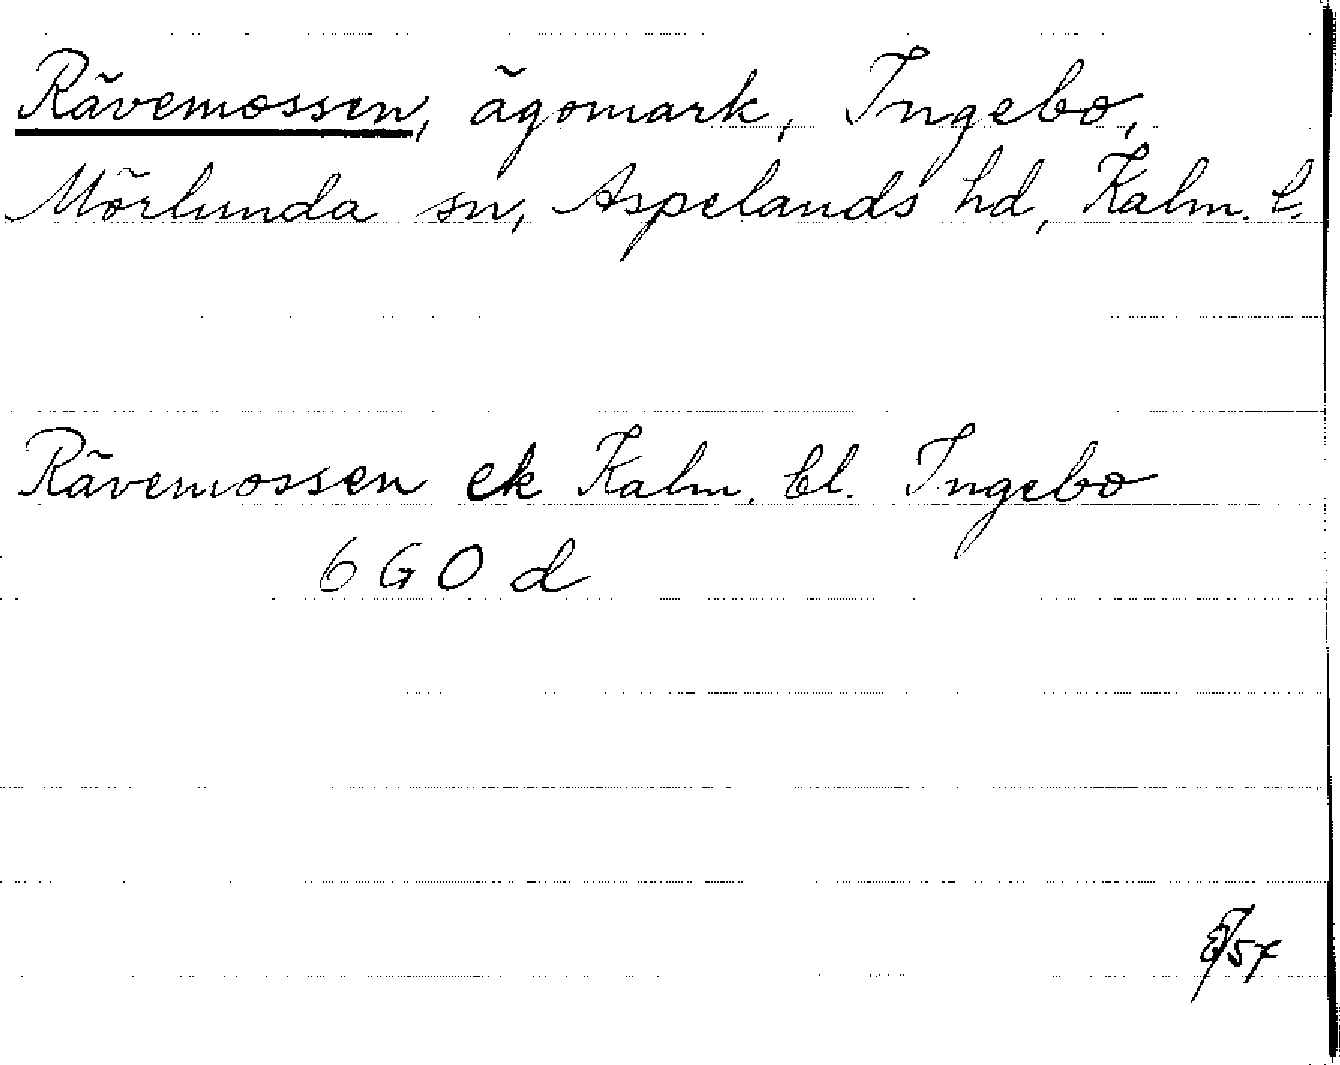 Rävemossen, ägomark, Ingebo,
Mörlunda sn, Aspelands hd, Kalm. l.
Rävemossen ek Kalm. bl. Ingebo
6 G O d